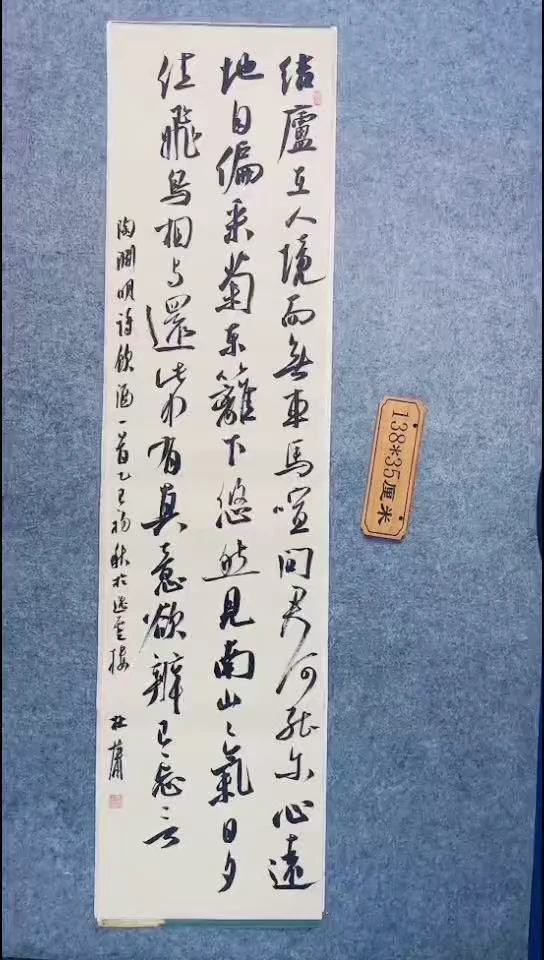 结廬在人境而無車馬喧問君何能尔心遠
地自偏采菊東籬下悠然見南山〻氣日夕
佳飛鳥相与還此中有真意欲辨已忘言
陶淵明詩飲酒一首乙巳秋於樓
138*35厘米